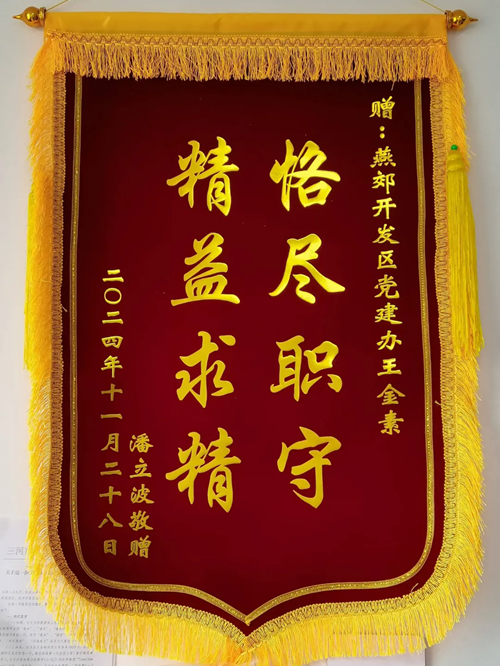 赠：燕郊开发区党建办王金素
恪尽职守
精益求精
潘立波敬赠
二〇二四年十一月二十八日